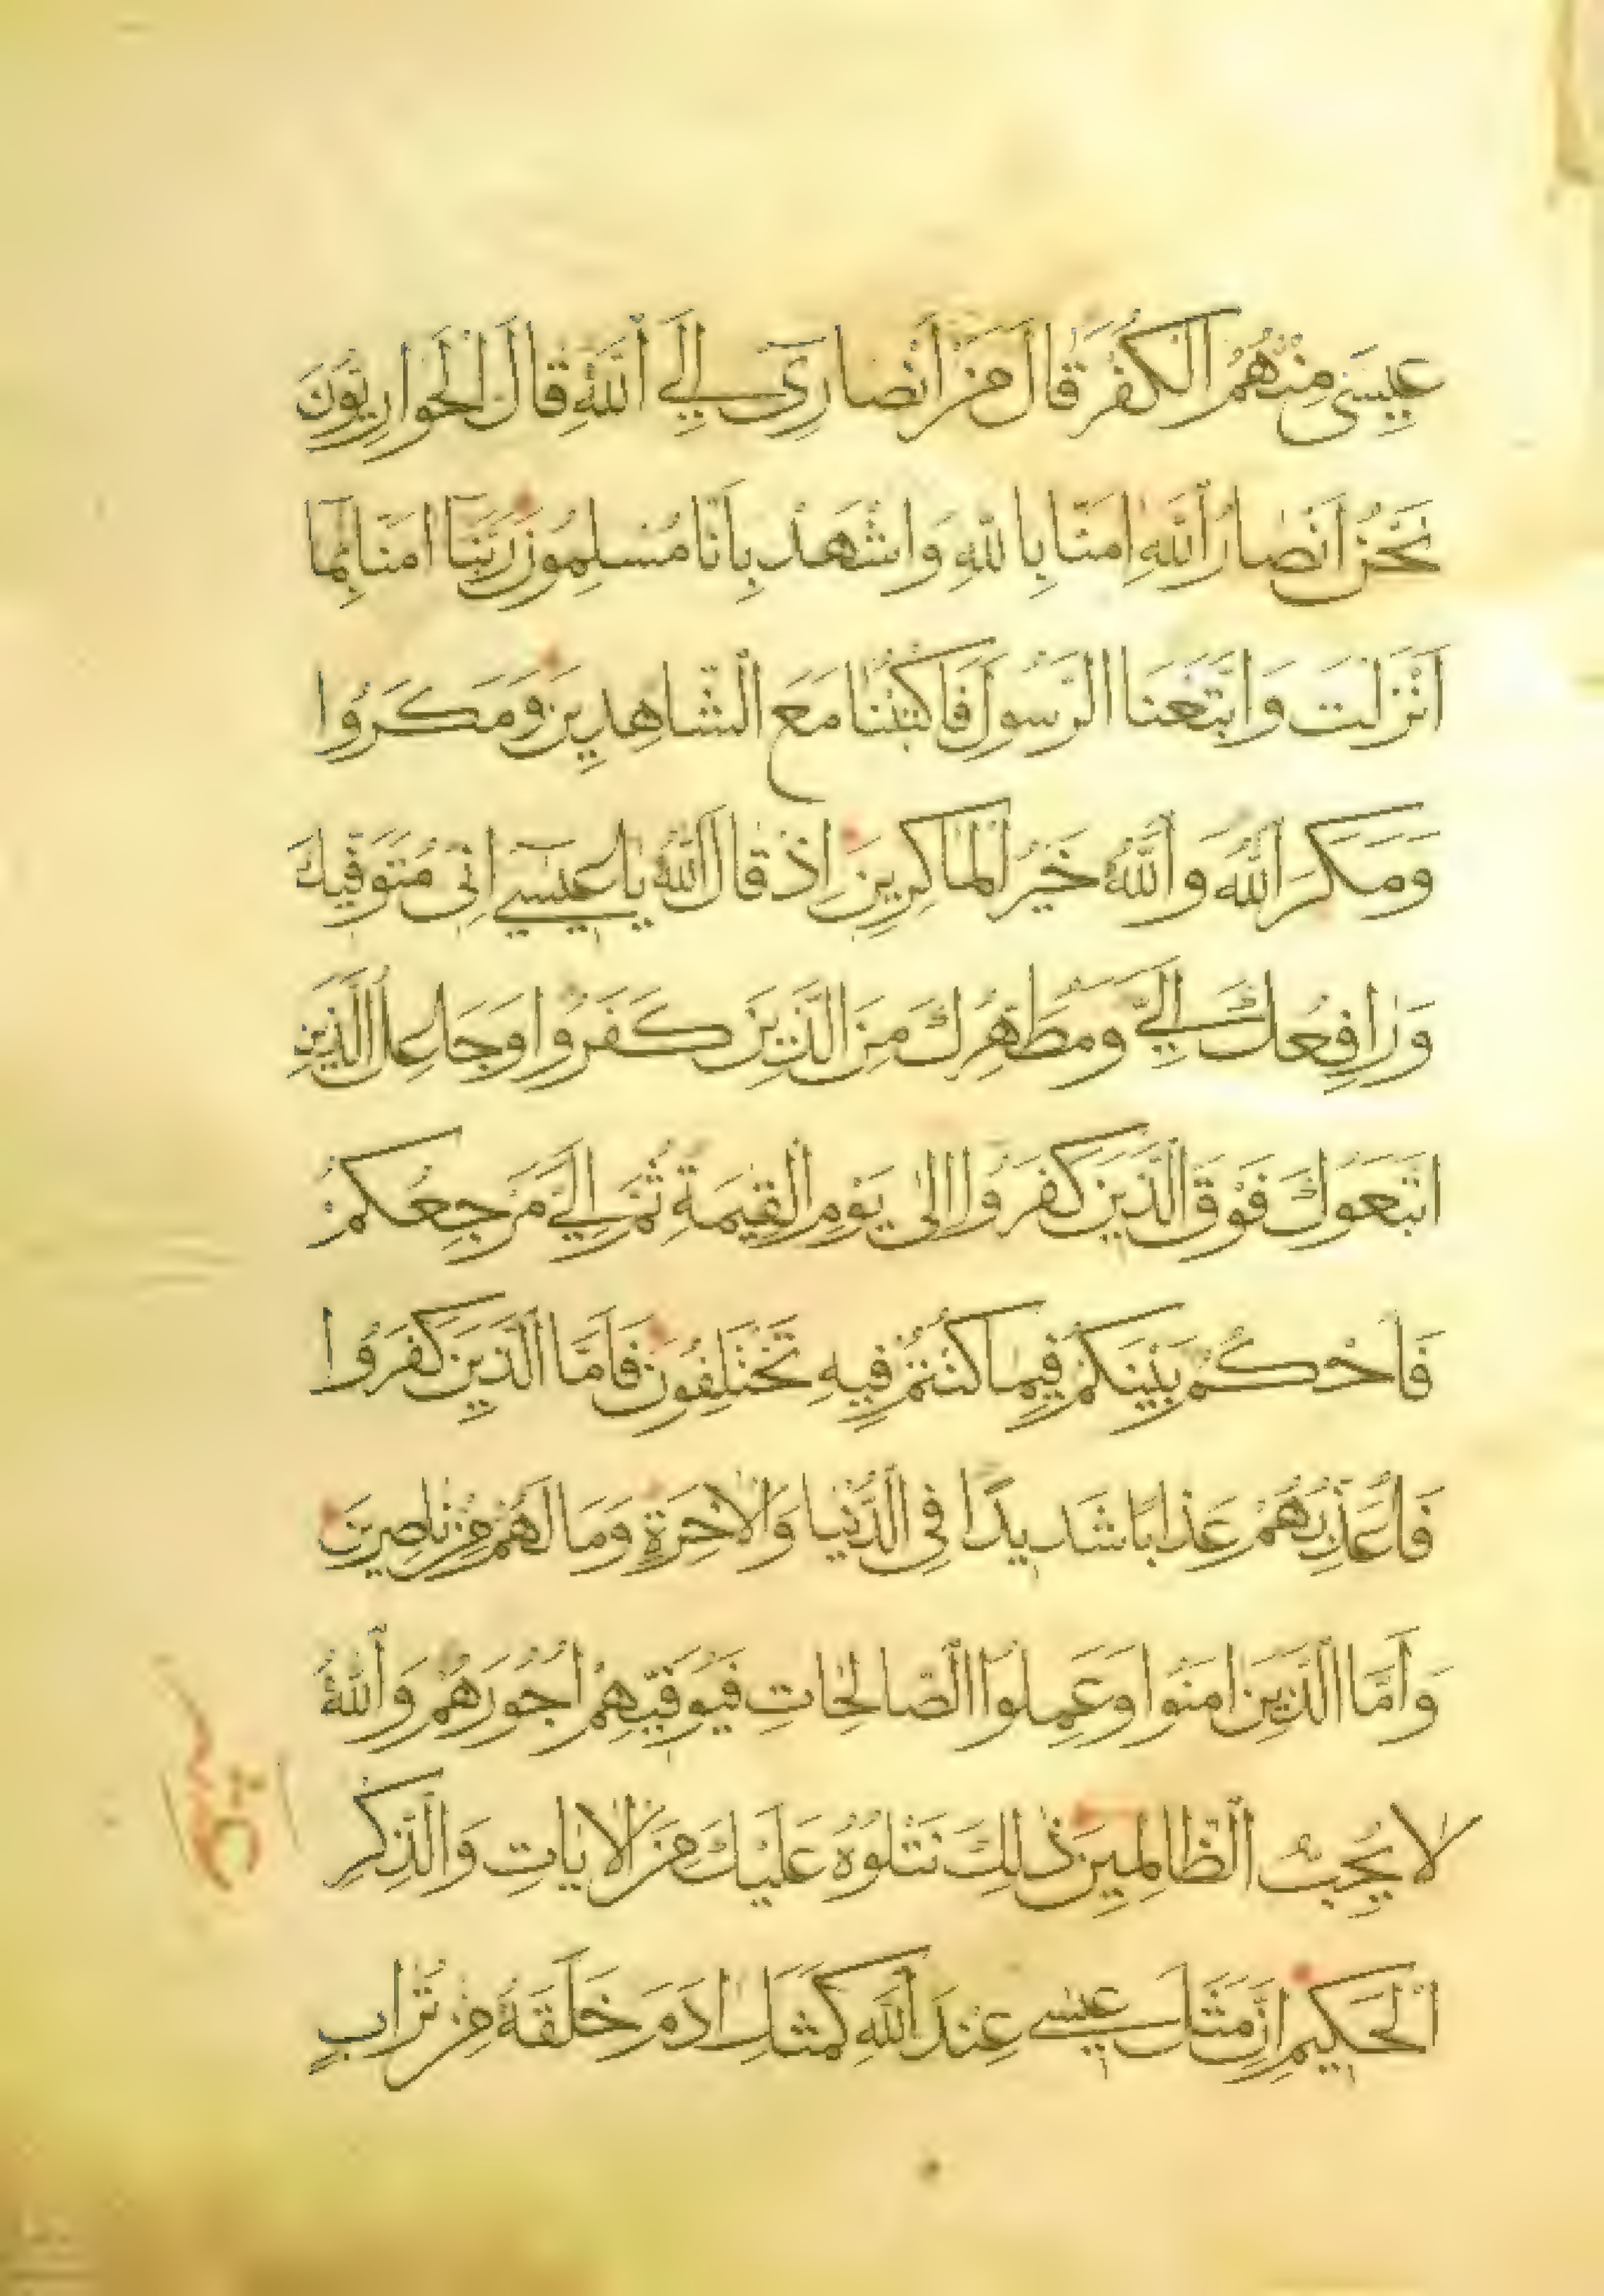 عِيسَى مِنْهُمُ الْكُفْرَ قَالَ مَنْ أَنْصَارِي إِلَى اللَّهِ قَالَ الْحَوَارِيُّونَ
نَحْنُ أَنْصَارُ اللَّهِ اٰمَنَّا بِاللَّهِ وَاشْهَدْ بِأَنَّا مُسْلِمُونَ رَبَّنَا اٰمَنَّا بِمَا
أَنْزَلْتَ وَاتَّبَعْنَا الرَّسُولَ فَاكْتُبْنَا مَعَ الشَّاهِدِينَ وَمَكَرُوا
وَمَكَرَ اللَّهُ وَاللَّهُ خَيْرُ الْمَاكِرِينَ إِذْ قَالَ اللَّهُ يَا عِيسَى إِنِّي مُتَوَفِّيكَ
وَرَافِعُكَ إِلَيَّ وَمُطَهِّرُكَ مِنَ الَّذِينَ كَفَرُوا وَجَاعِلُ الَّذِينَ
اتَّبَعُوكَ فَوْقَ الَّذِينَ كَفَرُوا إِلَى يَوْمِ الْقِيٰمَةِ ثُمَّ إِلَيَّ مَرْجِعُكُمْ
فَأَحْكُمُ بَيْنَكُمْ فِيمَا كُنْتُمْ فِيهِ تَخْتَلِفُونَ فَأَمَّا الَّذِينَ كَفَرُوا
فَأُعَذِّبُهُمْ عَذَابًا شَدِيدًا فِي الدُّنْيَا وَالْاٰخِرَةِ وَمَا لَهُمْ مِنْ نَاصِرِينَ
وَأَمَّا الَّذِينَ اٰمَنُوا وَعَمِلُوا الصَّالِحَاتِ فَيُوَفِّيهِمْ أُجُورَهُمْ وَاللَّهُ
لَا يُحِبُّ الظَّالِمِينَ ذٰلِكَ نَتْلُوهُ عَلَيْكَ مِنَ الْاٰيَاتِ وَالذِّكْرِ
الْحَكِيمِ إِنَّ مَثَلَ عِيسَى عِنْدَ اللَّهِ كَمَثَلِ اٰدَمَ خَلَقَهُ مِنْ تُرَابٍ